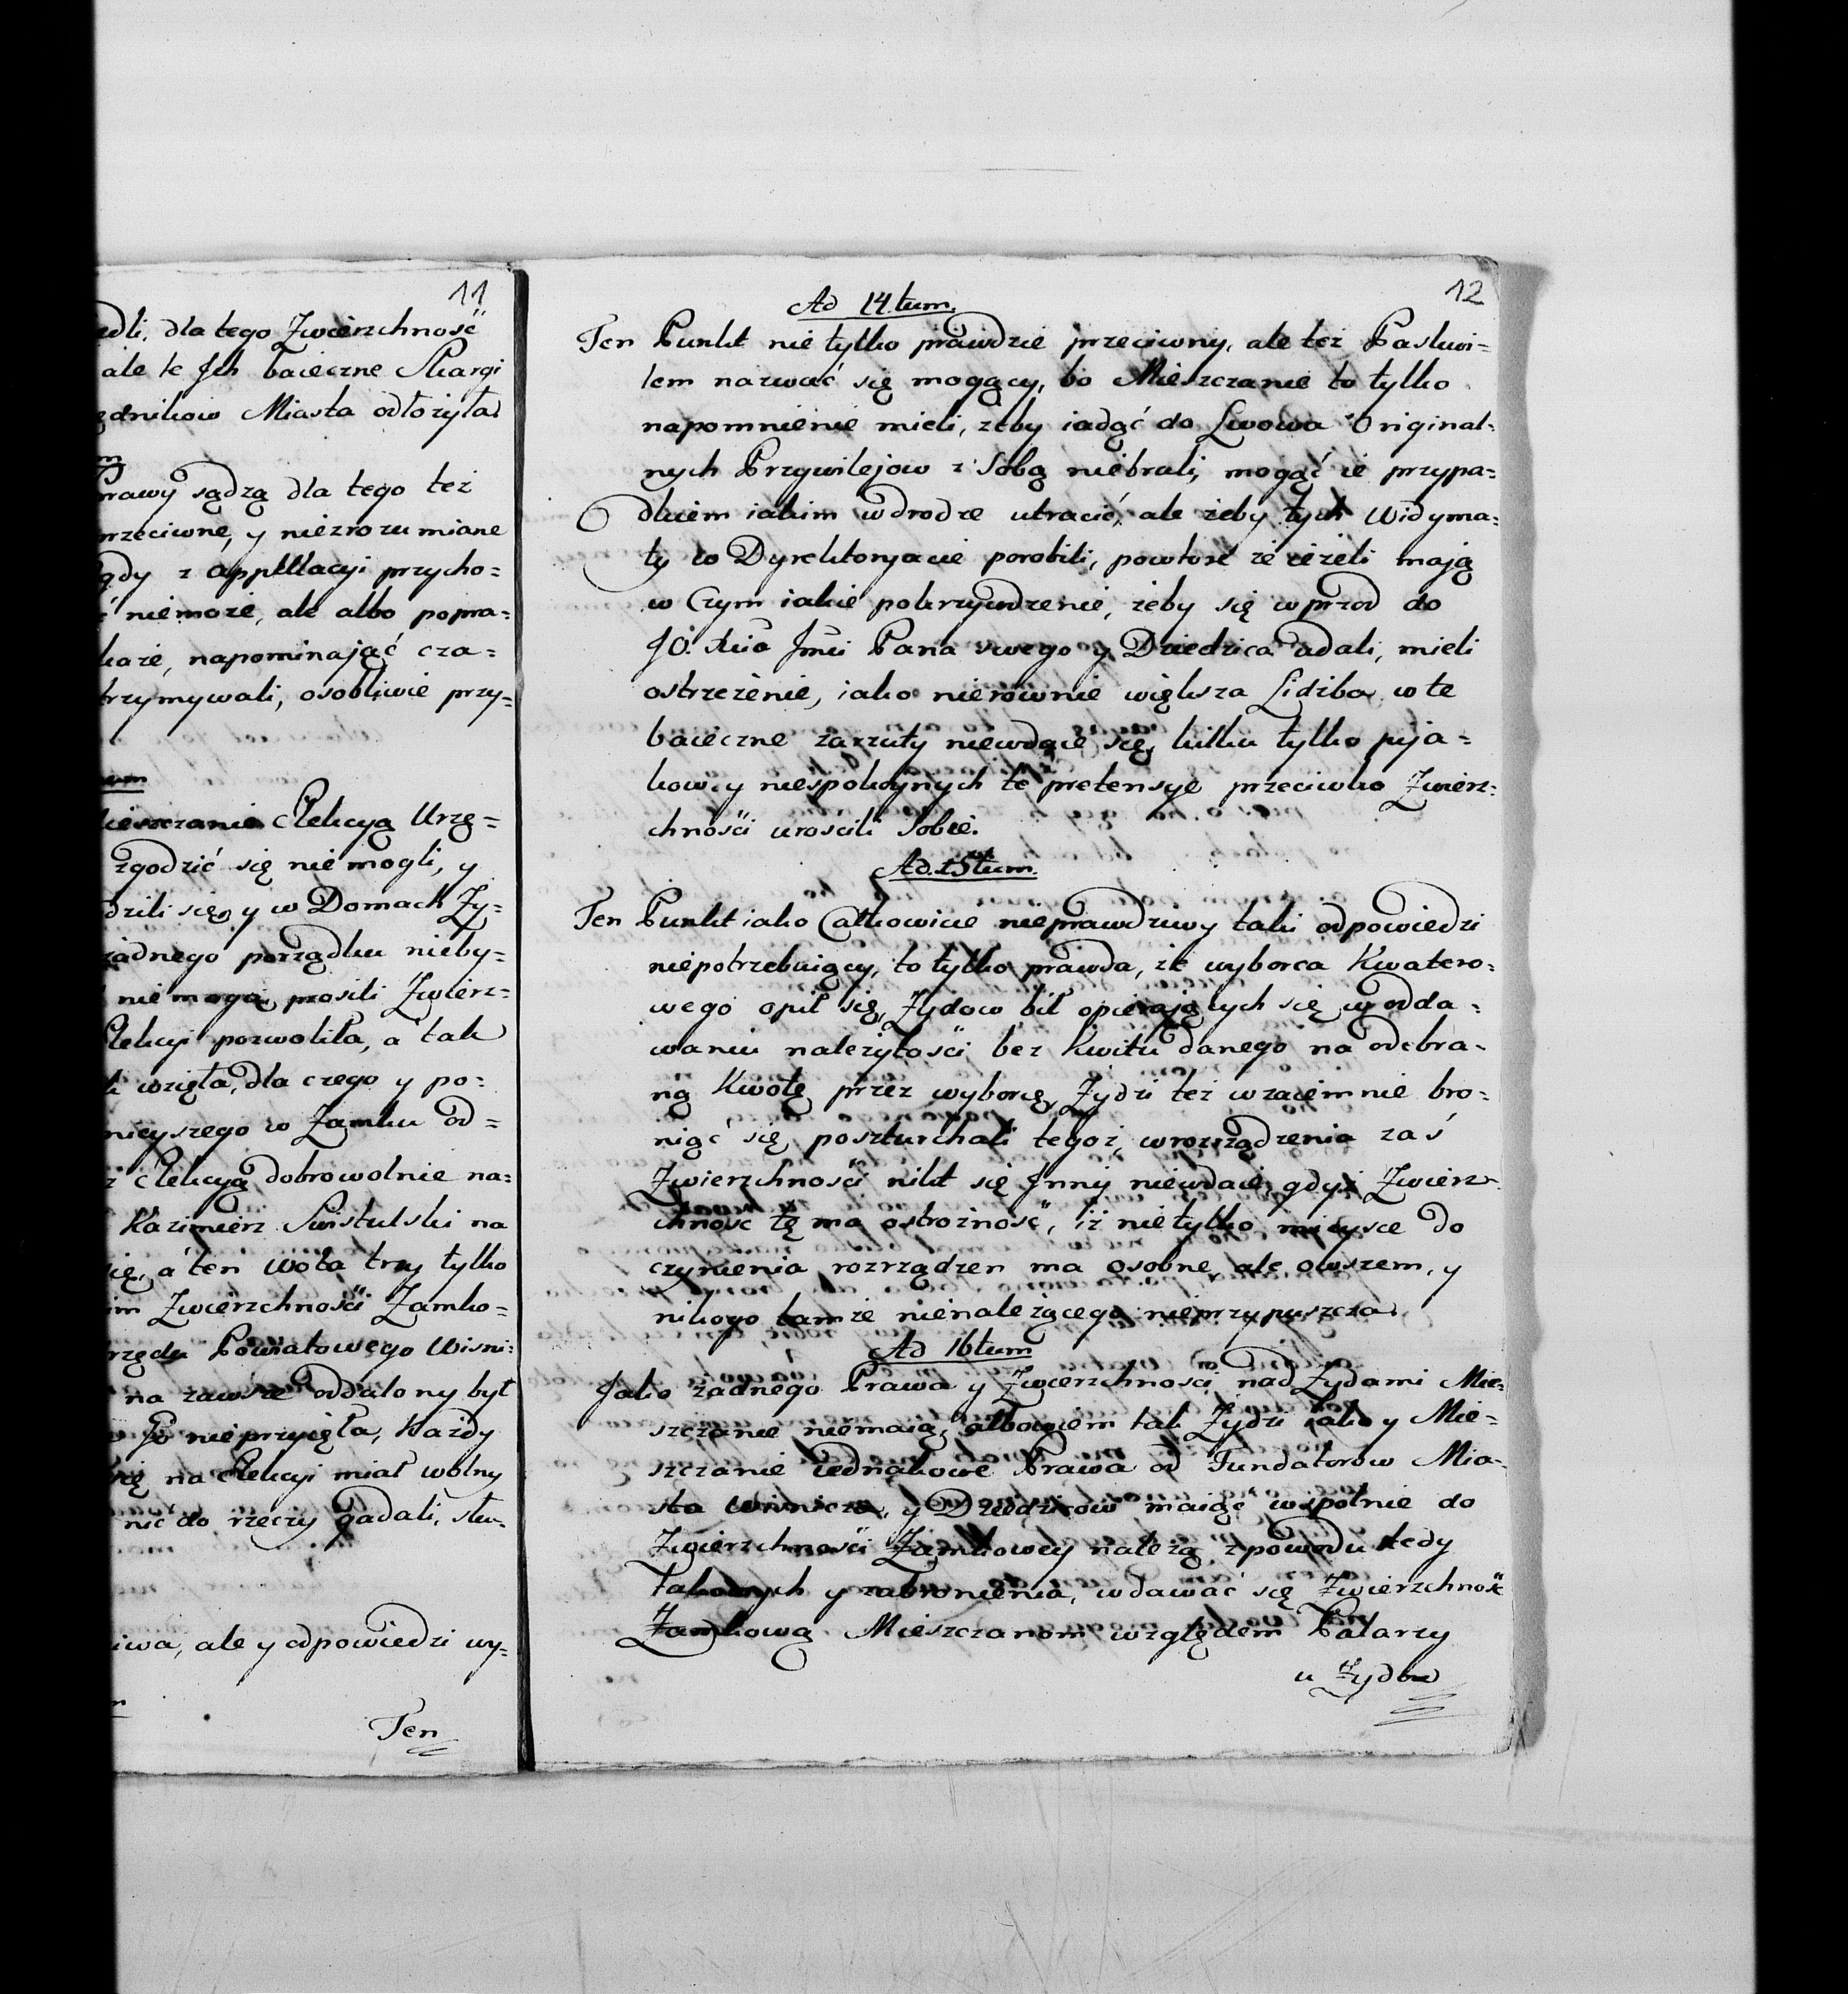 11
edli, dla tego Zwierzchność
ale te Jch baieczne Skargi
zędnikow Miasta odłożyła
m
Prawy sądzą dla tego też
przeciwne, y niezrozumiane
gdy z appellacyi przycho=
ć niemoże, ale albo popra=
każe, napominaiąć cza=
trzymywali, osobliwie przy=
um
Mieszczanie Elekcyą Urzę=
zgodzić się niemogli, y
dzili się, y w Domach Ży=
żadnego porządku nieby=
niemogą, prosili Zwierz=
Elekcyi pozwoliła, a tak
wzięła, dla czego y po=
nieyszego w Zamku od=
ż Elekcyą dobrowolnie na=
Kazimierz Swistulski na
ię, a ten wota trzy tylko
im Zwierzchności Zamko=
rzędu Powiatowego Wisni=
na zawsze oddalony był
Go nieprzyięła, Każdy
się na Elekcyi miał wolny
nic do rzeczy gadali, słu=
iwa, ale y odpowiedzi wy=
Ten
12
Ad 14tum.
Ten Punkt nie tylko prawdzie przeciwny, ale też Paskwi=
lem nazwać się mogący, bo Mieszczanie to tylko
napomnienie mieli, żeby iadąć do Lwowa Original=
nych Przywilejow z Sobą niebrali, mogąć ie przypa=
dkiem iakim wdrodze utracić, ale żeby tych Widyma=
ty w Dyrektoryacie porobili, powtore że ieżeli mają
w Czym iakie pokrzywdzenie, żeby się wprzod do
JO. Xcia Jmci Pana swego y Dziedzica udali, mieli
ostrzeżenie, iako nierownie większa Lidzba w te
baieczne zarzuty niewdaie się, kilku tylko pija=
kow, y niespokoynych te pretensye przeciwko Zwierz=
chności urościli Sobie.
Ad. 15tum.
Ten Punkt iako Całkowicie nieprawdziwy taki odpowiedzi
niepotrzebuiący, to tylko prawda, że wyborca Kwatero=
wego opił się, Żydow bił opieraiących się w odda=
waniu należytości bez Kwitu danego na odebra=
ną Kwotę przez wyborcę, Żydzi też wzaiemnie bro=
niąć się poszturchali tegoż, wrozrządzenia zaś
Zwierzchności nikt się Jnny niewdaie, gdyż Zwierz=
chność tę ma ostrożność, iż nietylko mieysce do
czynienia rozrządzeń ma osobne, ale owszem, y
nikogo tamże nienależącego nieprzypuszcza.
Ad 16tum
Jako żadnego Prawa y Zwierzchności nad Żydami Mie=
szczanie niemaią, albowiem tak Żydzi iako y Mie=
szczanie iednakowe Prawa od Fundatorow Mia=
sta Wisnicza, y Dziedzicow maiąc wspolnie do
Zwierzchności Zamkowey należą, z powodu tedy
takowych y zabronienia, wdawać się Zwierzchność
Zamkowa Mieszczanom względem Patarzy
u Żydow